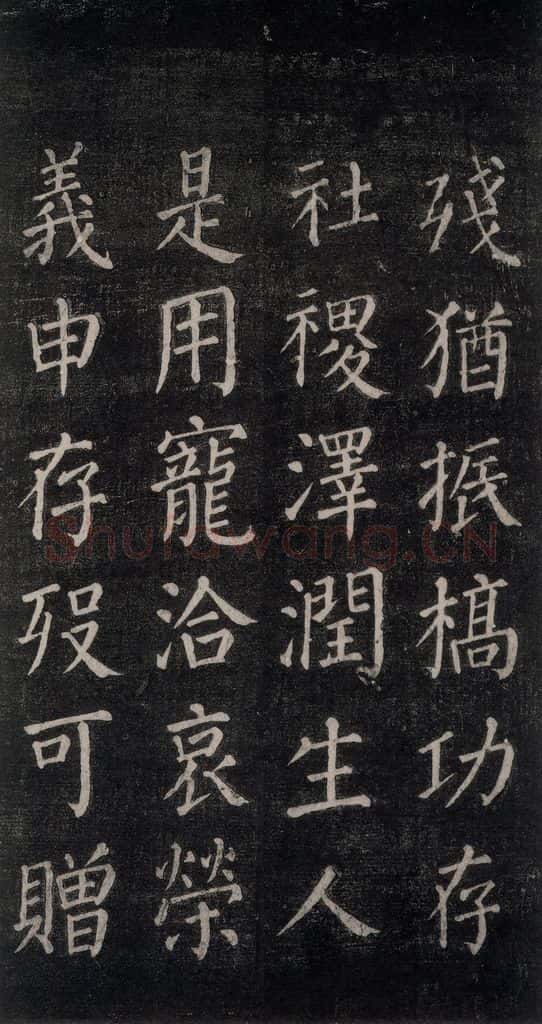 殘猶振槁功存
社稷澤潤生人
是用寵洽哀榮
義申存歿可贈
Shufawang.CN